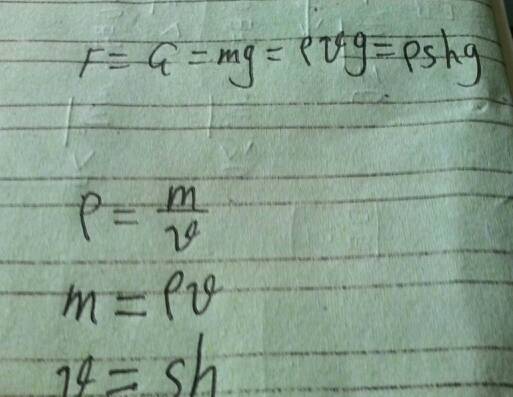 F = G = mg = ρVg = ρshg
ρ = m/V
m = ρV
V = sh